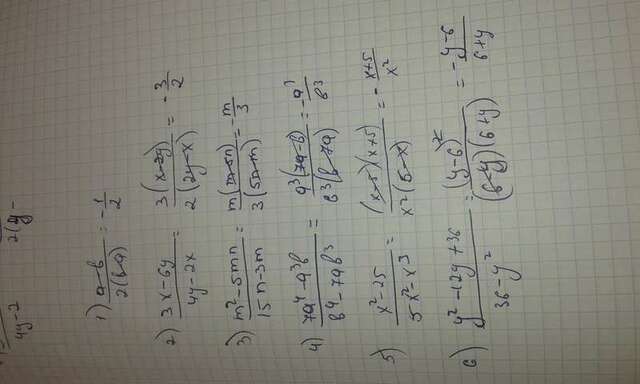 4y-2
2(y-
1) a-b / 2(b-a) = -1/2
2) 3x-6y / 4y-2x = 3(x-2y) / 2(2y-x) = -3/2
3) m²-5mn / 15n-3m = m(m-5n) / 3(5n-m) = -m/3
4) 7a⁴-a³b / b⁴-7ab³ = a³(7a-b) / b³(b-7a) = -a³/b³
5) x²-25 / 5x²-x³ = (x-5)(x+5) / x²(5-x) = -x+5 / x²
6) y²-12y+36 / 36-y² = (y-6)² / (6-y)(6+y) = -y-6 / 6+y